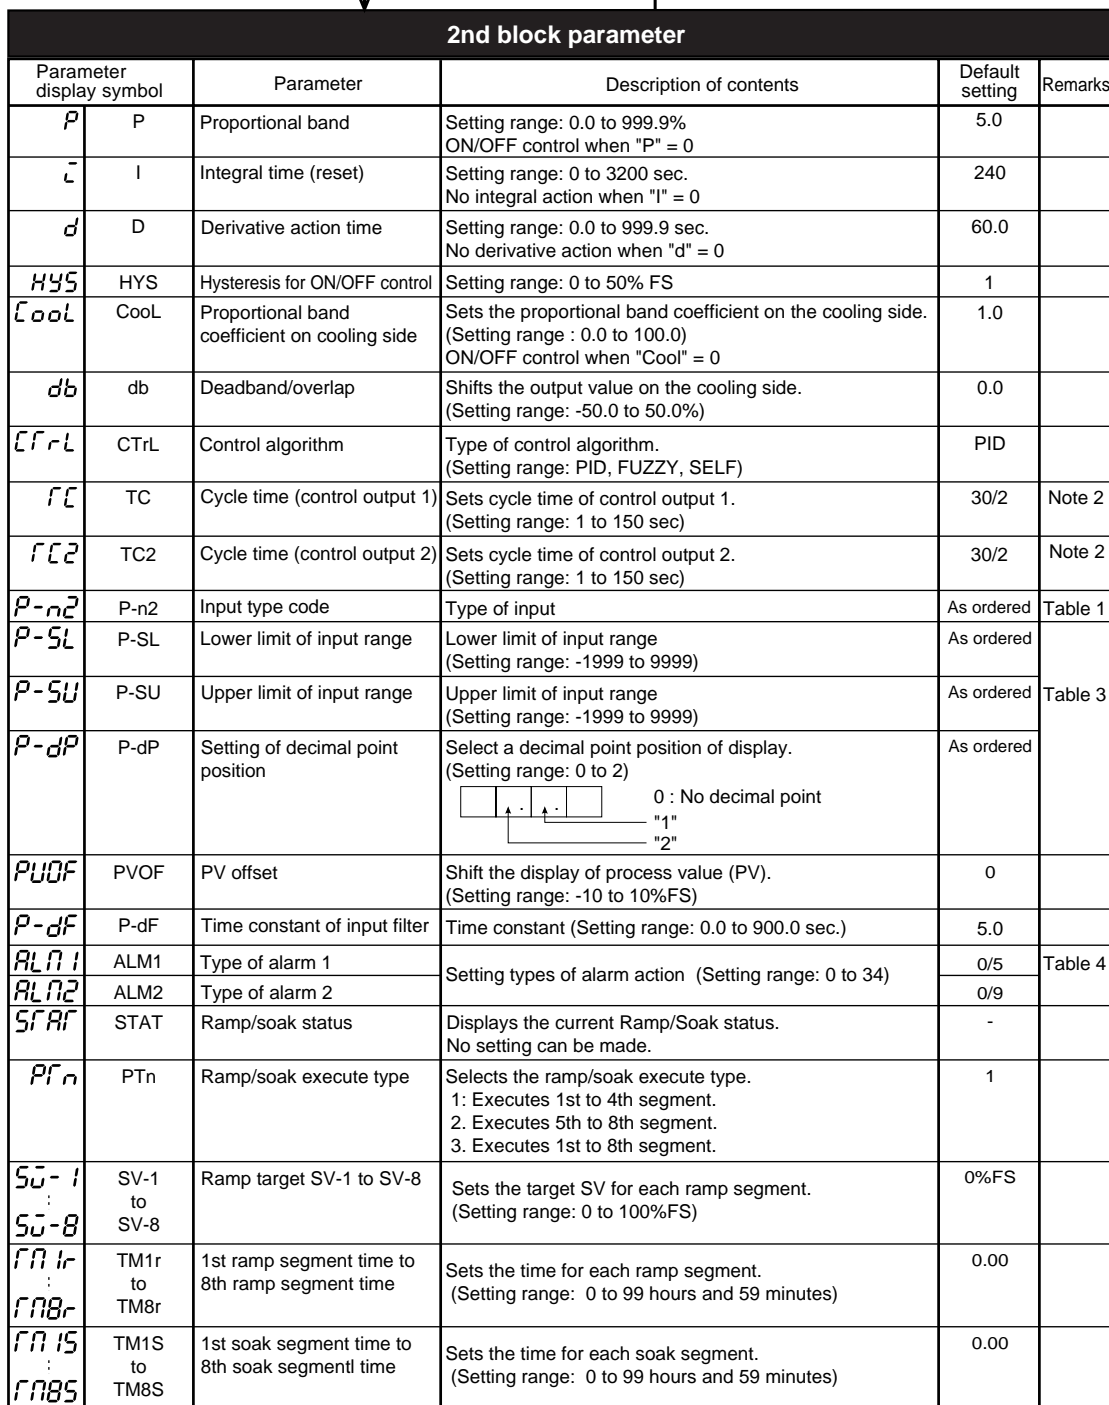 2nd block parameter
Parameter display symbol
Parameter
Description of contents
Default setting
Remarks
P P Proportional band Setting range: 0.0 to 999.9% 5.0
ON/OFF control when "P" = 0
i I Integral time (reset) Setting range: 0 to 3200 sec. 240
No integral action when "I" = 0
d D Derivative action time Setting range: 0.0 to 999.9 sec. 60.0
No derivative action when "d" = 0
HYS HYS Hysteresis for ON/OFF control Setting range: 0 to 50% FS 1
CooL CooL Proportional band coefficient on cooling side Sets the proportional band coefficient on the cooling side. 1.0
(Setting range : 0.0 to 100.0)
ON/OFF control when "Cool" = 0
db db Deadband/overlap Shifts the output value on the cooling side. 0.0
(Setting range: -50.0 to 50.0%)
CTrL CTrL Control algorithm Type of control algorithm. PID
(Setting range: PID, FUZZY, SELF)
TC TC Cycle time (control output 1) Sets cycle time of control output 1. 30/2 Note 2
(Setting range: 1 to 150 sec)
TC2 TC2 Cycle time (control output 2) Sets cycle time of control output 2. 30/2 Note 2
(Setting range: 1 to 150 sec)
P-n2 P-n2 Input type code Type of input As ordered Table 1
P-SL P-SL Lower limit of input range Lower limit of input range As ordered
(Setting range: -1999 to 9999)
P-SU P-SU Upper limit of input range Upper limit of input range As ordered Table 3
(Setting range: -1999 to 9999)
P-dP P-dP Setting of decimal point position Select a decimal point position of display. As ordered
(Setting range: 0 to 2)
. . 0 : No decimal point
"1"
"2"
PVOF PVOF PV offset Shift the display of process value (PV). 0
(Setting range: -10 to 10%FS)
P-dF P-dF Time constant of input filter Time constant (Setting range: 0.0 to 900.0 sec.) 5.0
ALM1 ALM1 Type of alarm 1 Setting types of alarm action (Setting range: 0 to 34) 0/5 Table 4
ALM2 ALM2 Type of alarm 2 0/9
STAT STAT Ramp/soak status Displays the current Ramp/Soak status. -
No setting can be made.
PTn PTn Ramp/soak execute type Selects the ramp/soak execute type. 1
1: Executes 1st to 4th segment.
2. Executes 5th to 8th segment.
3. Executes 1st to 8th segment.
Sv-1 : Sv-8 SV-1 to SV-8 Ramp target SV-1 to SV-8 Sets the target SV for each ramp segment. 0%FS
(Setting range: 0 to 100%FS)
TM1r : TM8r TM1r to TM8r 1st ramp segment time to 8th ramp segment time Sets the time for each ramp segment. 0.00
(Setting range: 0 to 99 hours and 59 minutes)
TM1S : TM8S TM1S to TM8S 1st soak segment time to 8th soak segmentl time Sets the time for each soak segment. 0.00
(Setting range: 0 to 99 hours and 59 minutes)